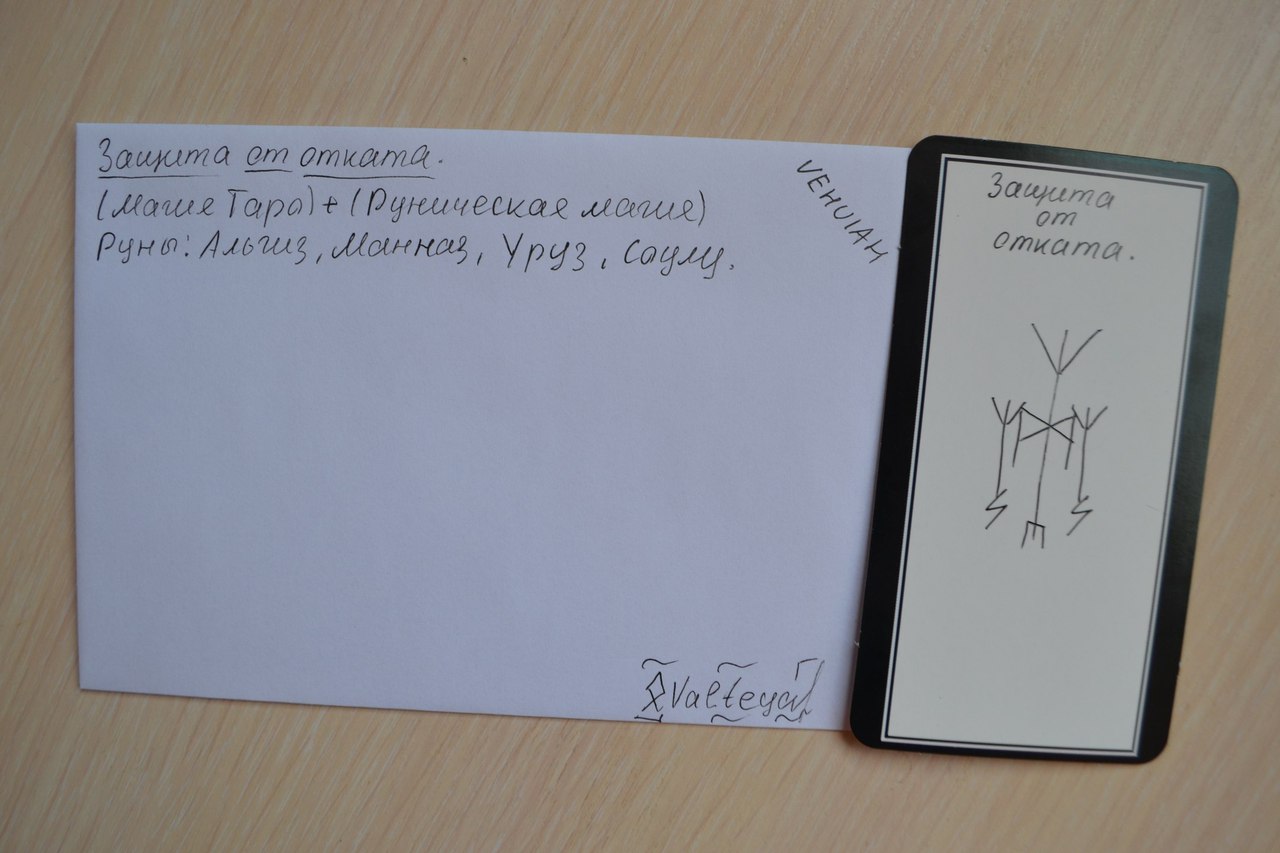 Защита от отката.
(Магия Таро) + (Руническая магия)
Руны: Альгиз, Манназ, Уруз, Соулу.
VEHUIAH
Valteya
Защита
от
отката.